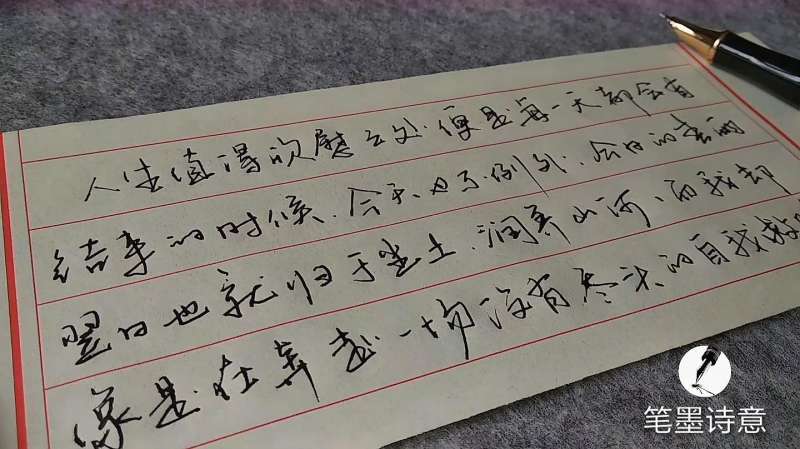 人生值得欣慰之处.便是每一天都会有
结束的时候.今天也不例外.今日的春雨
翌日也就归于尘土.润养山河、而我却
像是在奔赴一场没有尽头的自我救
笔墨诗意